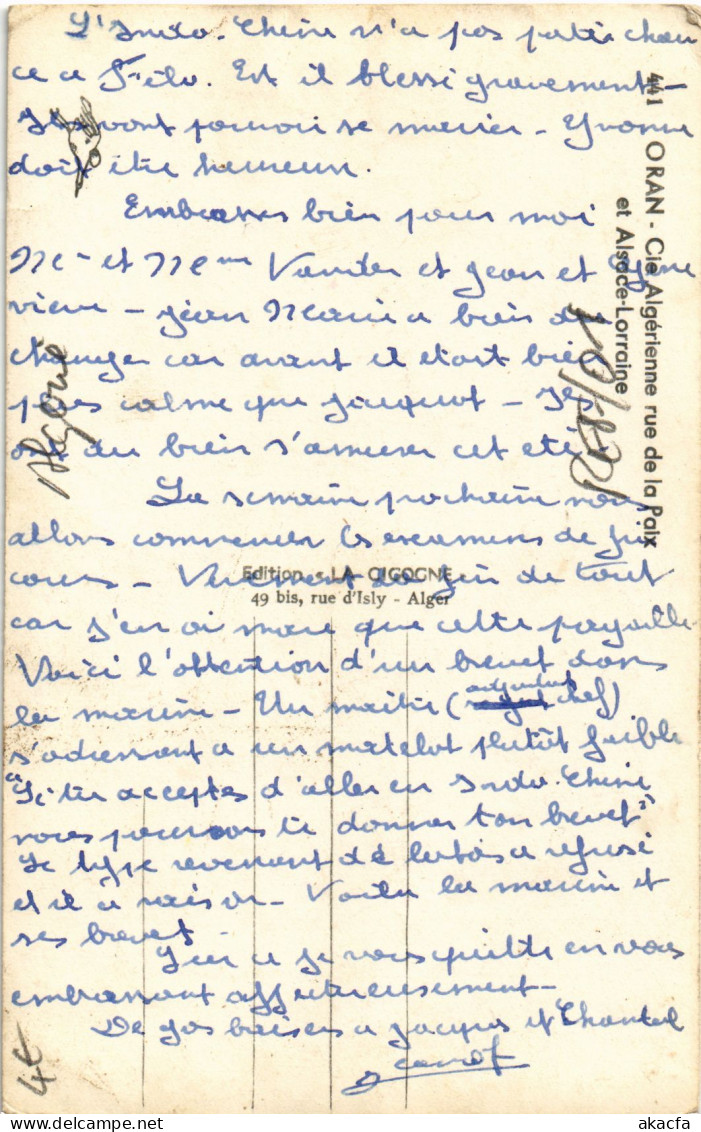 L'Indo-Chine n'a pas porté chan
ce a Filo. Est il blessé gravement -
Ils vont pouvoir se marier - Yvonne
doit être heureuse.
Embrasses bien pour moi
Mr et Mme Vander et Jean et Gene
vieve - Jean Marie a bien du
changer car avant il etait bien
plus calme que Jacquot - Ils
ont du bien s'amuser cet eté.
La semaine prochaine nous
allons commencer les examens de fin
cours - Vivement la fin de tout
car j'en ai mare que cette pagaille
Voici l'obtention d'un brevet dans
la marine - Un maitre (adjudant chef)
s'adressant a un matelot plutôt faible
"Si tu acceptes d'aller en Indo-Chine
nous pouvons te donner ton brevet"
Le type revenant de labas a refusé
et il a raison - Voila la marine et
ses brevets -
Sur ce je vous quitte en vous
embrassant affectueusement -
De gos baises a Jacques et Chantal
441 ORAN - Cie Algérienne rue de la Paix
et Alsace-Lorraine
Edition - LA CIGOGNE
49 bis, rue d'Isly - Alger
Algerie
4€
akacfa
www.delcampe.net